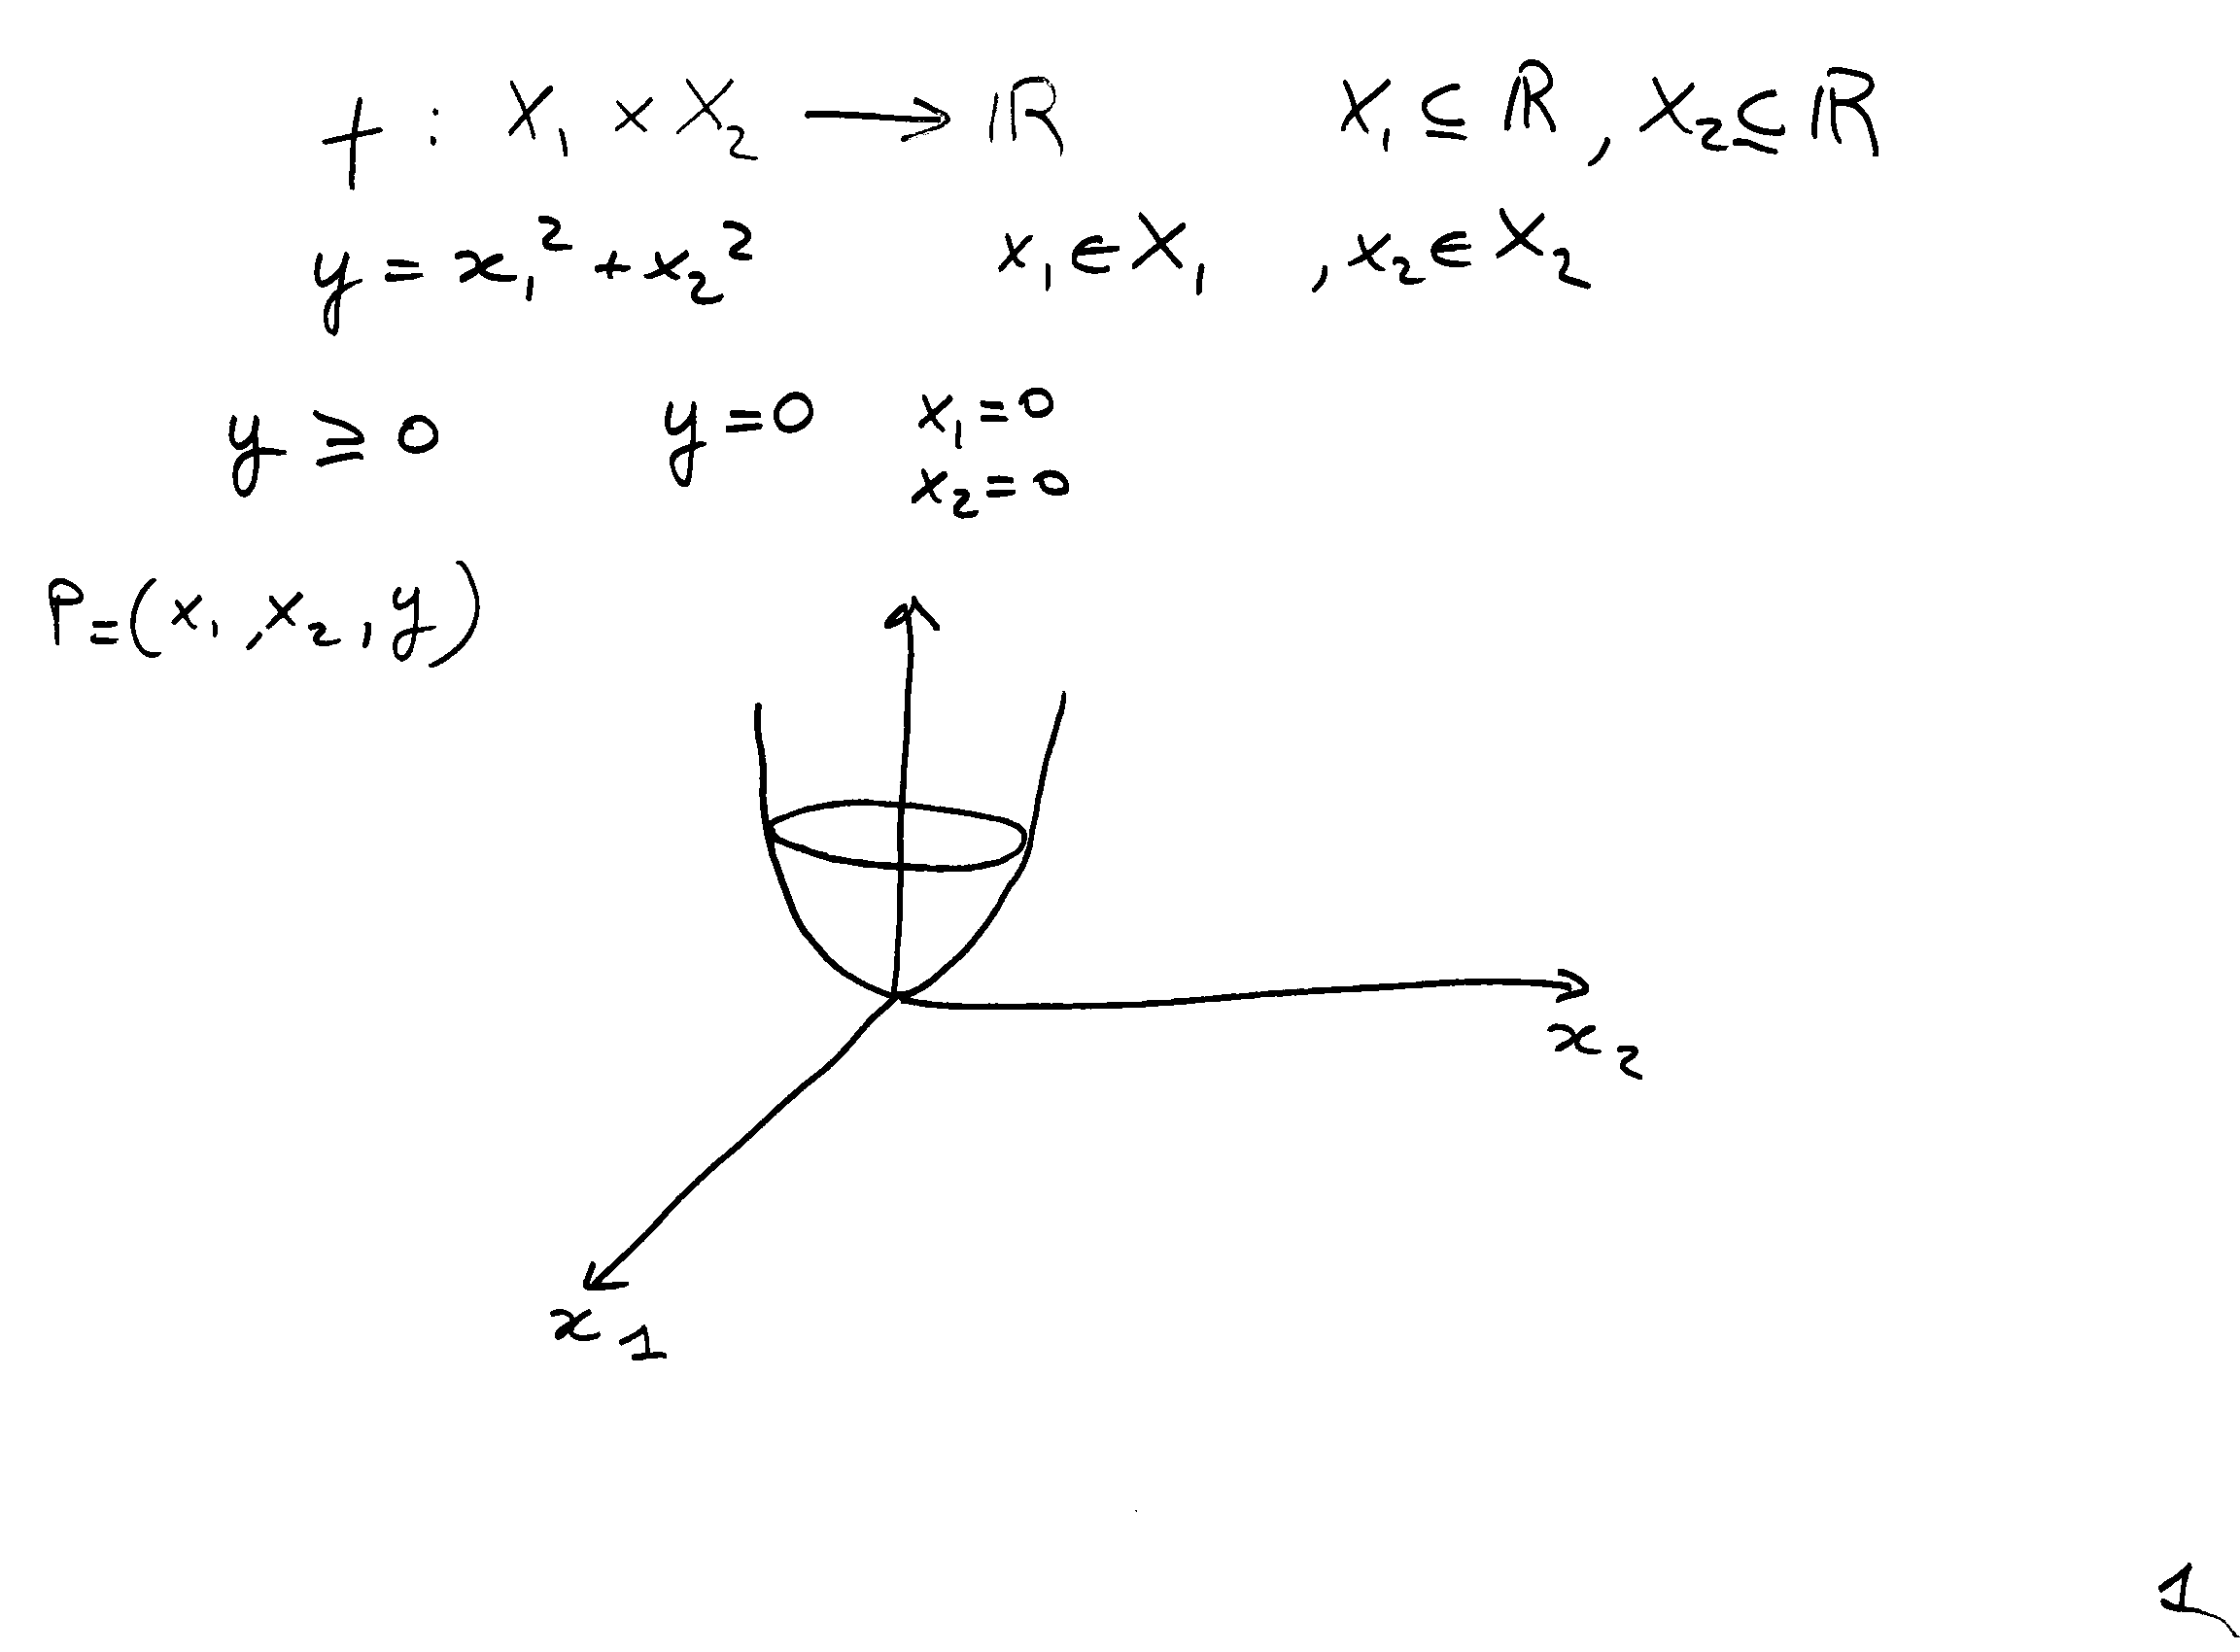 f : X₁ × X₂ ⟶ ℝ X₁ ⊆ ℝ , X₂ ⊆ ℝ
y = x₁² + x₂² x₁ ∈ X₁ , x₂ ∈ X₂
y ≥ 0 y = 0 x₁ = 0
x₂ = 0
P = (x₁ , x₂ , y)
x₂
x₁
1